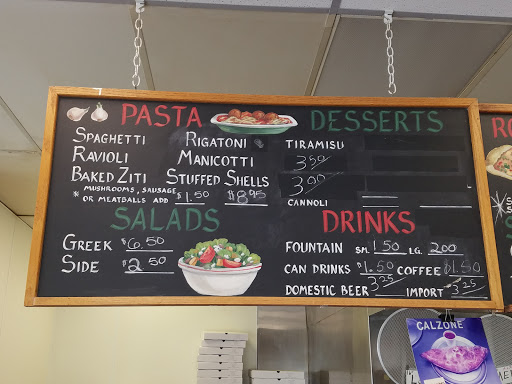 PASTA
SPAGHETTI RIGATONI
RAVIOLI MANICOTTI
BAKED ZITI STUFFED SHELLS
MUSHROOMS, SAUSAGE
OR MEATBALLS ADD $1.50 $8.95
SALADS
GREEK $6.50
SIDE $2.50
DESSERTS
TIRAMISU
3.50
3.00
CANNOLI
DRINKS
FOUNTAIN SM. 1.50 LG. 2.00
CAN DRINKS $1.50 COFFEE $1.50
DOMESTIC BEER 3.25 IMPORT 3.25
RO
CALZONE